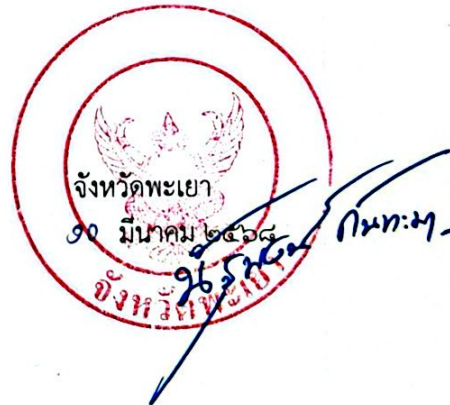 จังหวัดพะเยา
๑๐ มีนาคม ๒๕๖๘
จังหวัดพะเยา